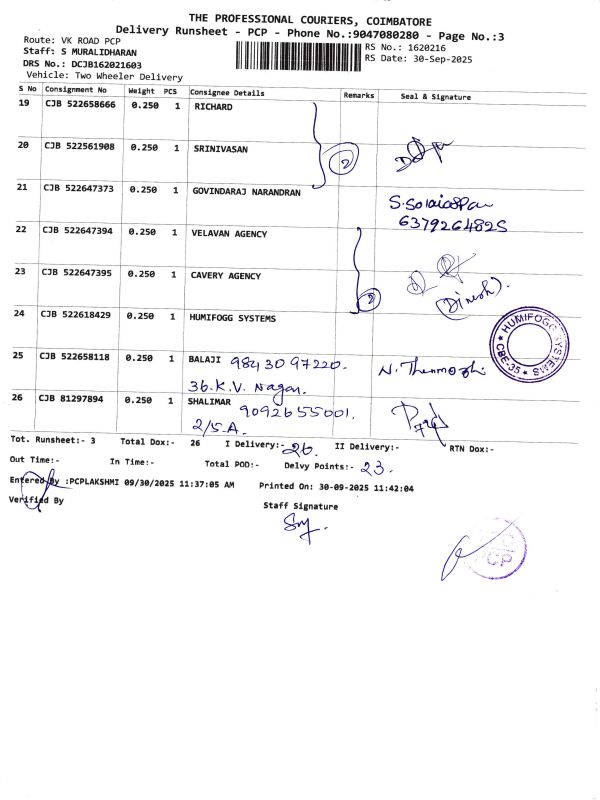 THE PROFESSIONAL COURIERS, COIMBATORE
Delivery Runsheet - PCP - Phone No.:9047080280 - Page No.:3
Route: VK ROAD PCP
RS No.: 1620216
Staff: S MURALIDHARAN
RS Date: 30-Sep-2025
DRS No.: DCJB162021603
Vehicle: Two Wheeler Delivery
S No Consignment No Weight PCS Consignee Details Remarks Seal & Signature
19 CJB 522658666 0.250 1 RICHARD
20 CJB 522561908 0.250 1 SRINIVASAN 2
21 CJB 522647373 0.250 1 GOVINDARAJ NARANDRAN
6379264825
22 CJB 522647394 0.250 1 VELAVAN AGENCY
23 CJB 522647395 0.250 1 CAVERY AGENCY 2 (Dinesh).
24 CJB 522618429 0.250 1 HUMIFOGG SYSTEMS
HUMIFOGG SYSTEMS
★ CBE-35 ★
25 CJB 522658118 0.250 1 BALAJI 9843097220. N. Thenmozhi
36.K.V. Nagar.
26 CJB 81297894 0.250 1 SHALIMAR 9092655001.
2/5.A.
Tot. Runsheet:- 3 Total Dox:- 26 I Delivery:- 26. II Delivery:- RTN Dox:-
Out Time:- In Time:- Total POD:- Delvy Points:- 23.
Entered By :PCPLAKSHMI 09/30/2025 11:37:05 AM Printed On: 30-09-2025 11:42:04
Verified By
Staff Signature
CP